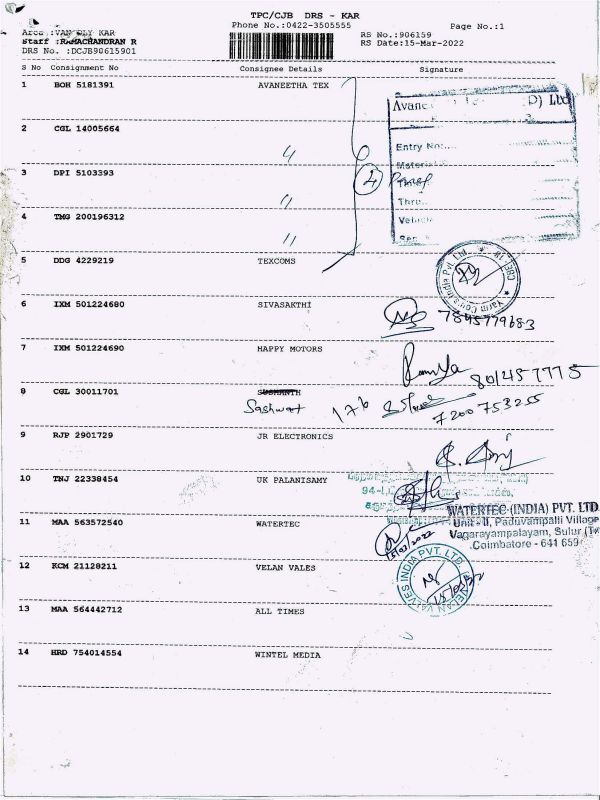 TPC/CJB DRS - KAR
Phone No.:0422-3505555
Page No.:1
Area :VAN DLY KAR
Staff :RAMACHANDRAN R
RS No.:906159
DRS No. :DCJB90615901
RS Date:15-Mar-2022
S No Consignment No Consignee Details Signature
1 BOH 5181391 AVANEETHA TEX
Avane
P) Ltd
2 CGL 14005664
Entry No:....
Material
3 DPI 5103393
4
Thru..
4 TMG 200196312
Vehicle
5 DDG 4229219 TEXCOMS
6 IXM 501224680 SIVASAKTHI
7845779683
7 IXM 501224690 HAPPY MOTORS
Ramya 801457775
8 CGL 30011701 SUSMANTH
Sashwat 176
7200753255
9 RJP 2901729 JR ELECTRONICS
10 TNJ 22338454 UK PALANISAMY
11 MAA 563572540 WATERTEC
WATERTEC (INDIA) PVT. LTD
Unit - II, Paduvampalli Village
Vagarayampalayam, Sulur (T
Coimbatore - 641 659
15/03/2022
12 KCM 21128211 VELAN VALES
VELAN VALVES INDIA PVT. LTD
13 MAA 564442712 ALL TIMES
14 HRD 754014554 WINTEL MEDIA